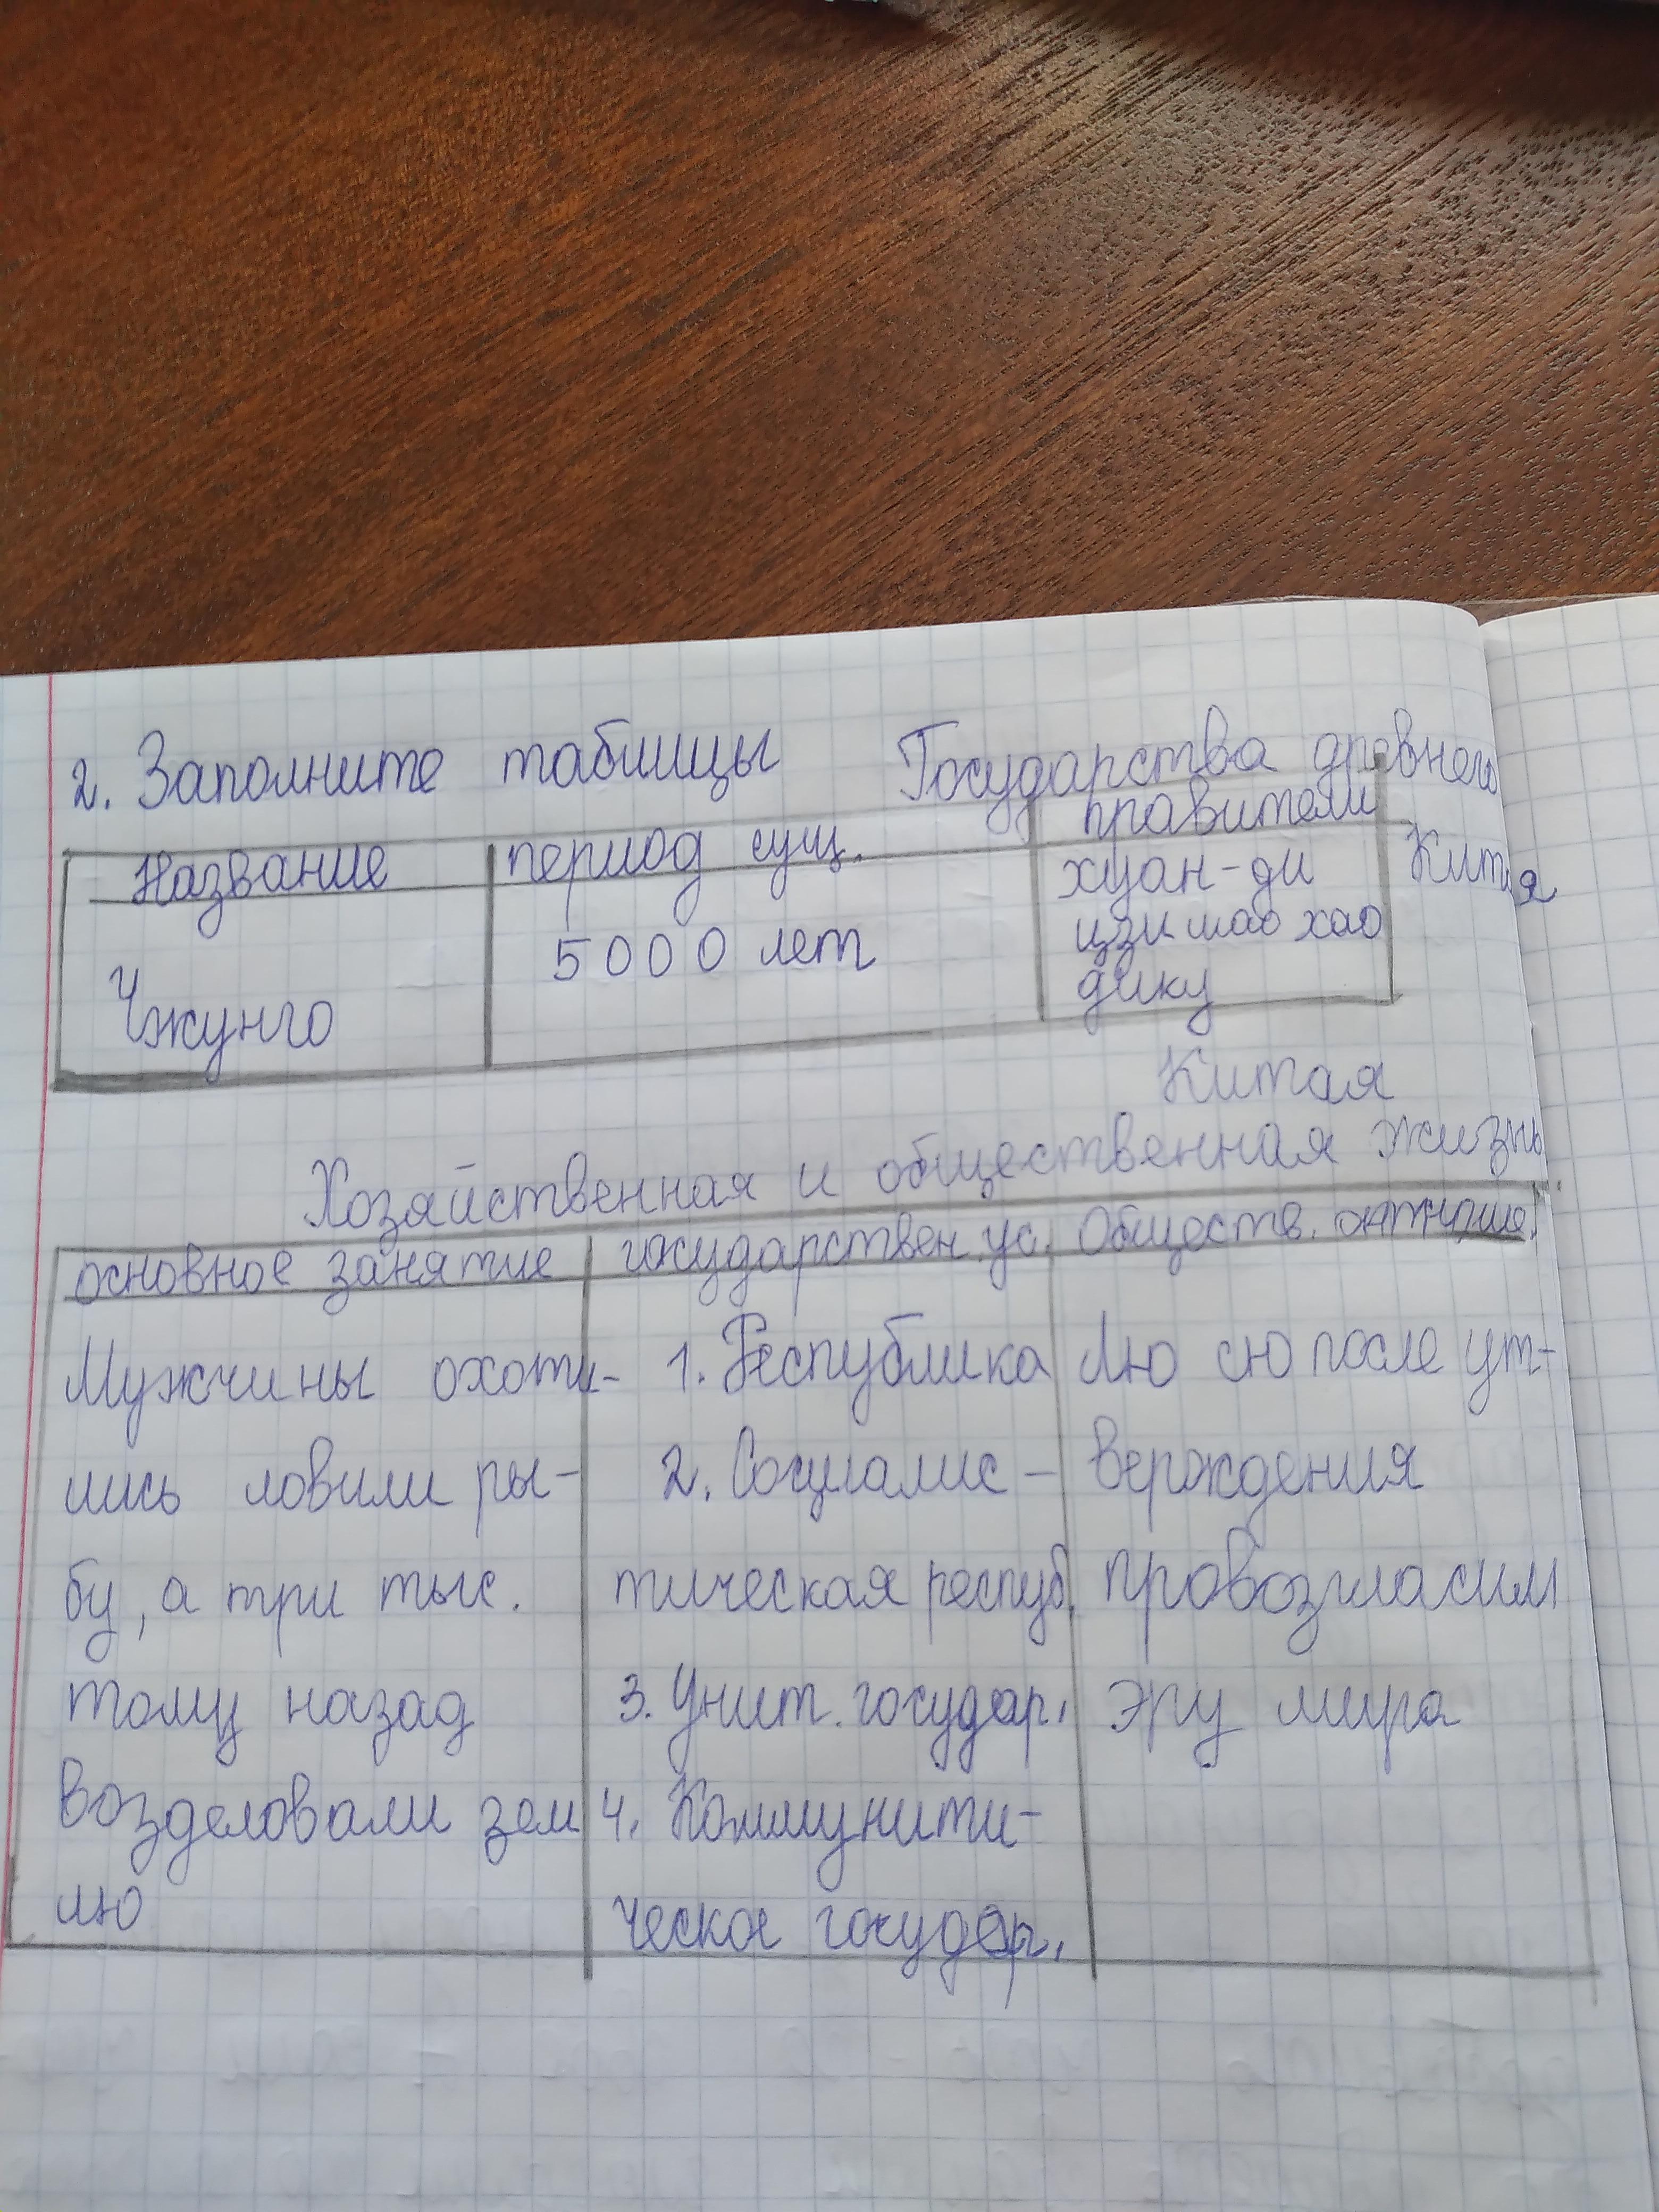 2. Заполните таблицы Государства древнего
Китая
Название период сущ. правители
Чжунго 5000 лет хуан-ди
цзи шао хао
дику
Китая
Хозяйственная и общественная жизнь
основное занятие государствен. ус. Обществ.
Мужчины охоти- 1. Республика Лю сю после ут-
лись ловили ры- 2. Социалис- верждения
бу, а три тыс. тическая респуб. провозгласил
тому назад 3. Унит. государ. эру мира
возделовали зем 4. Коммунити-
лю ческое государ.